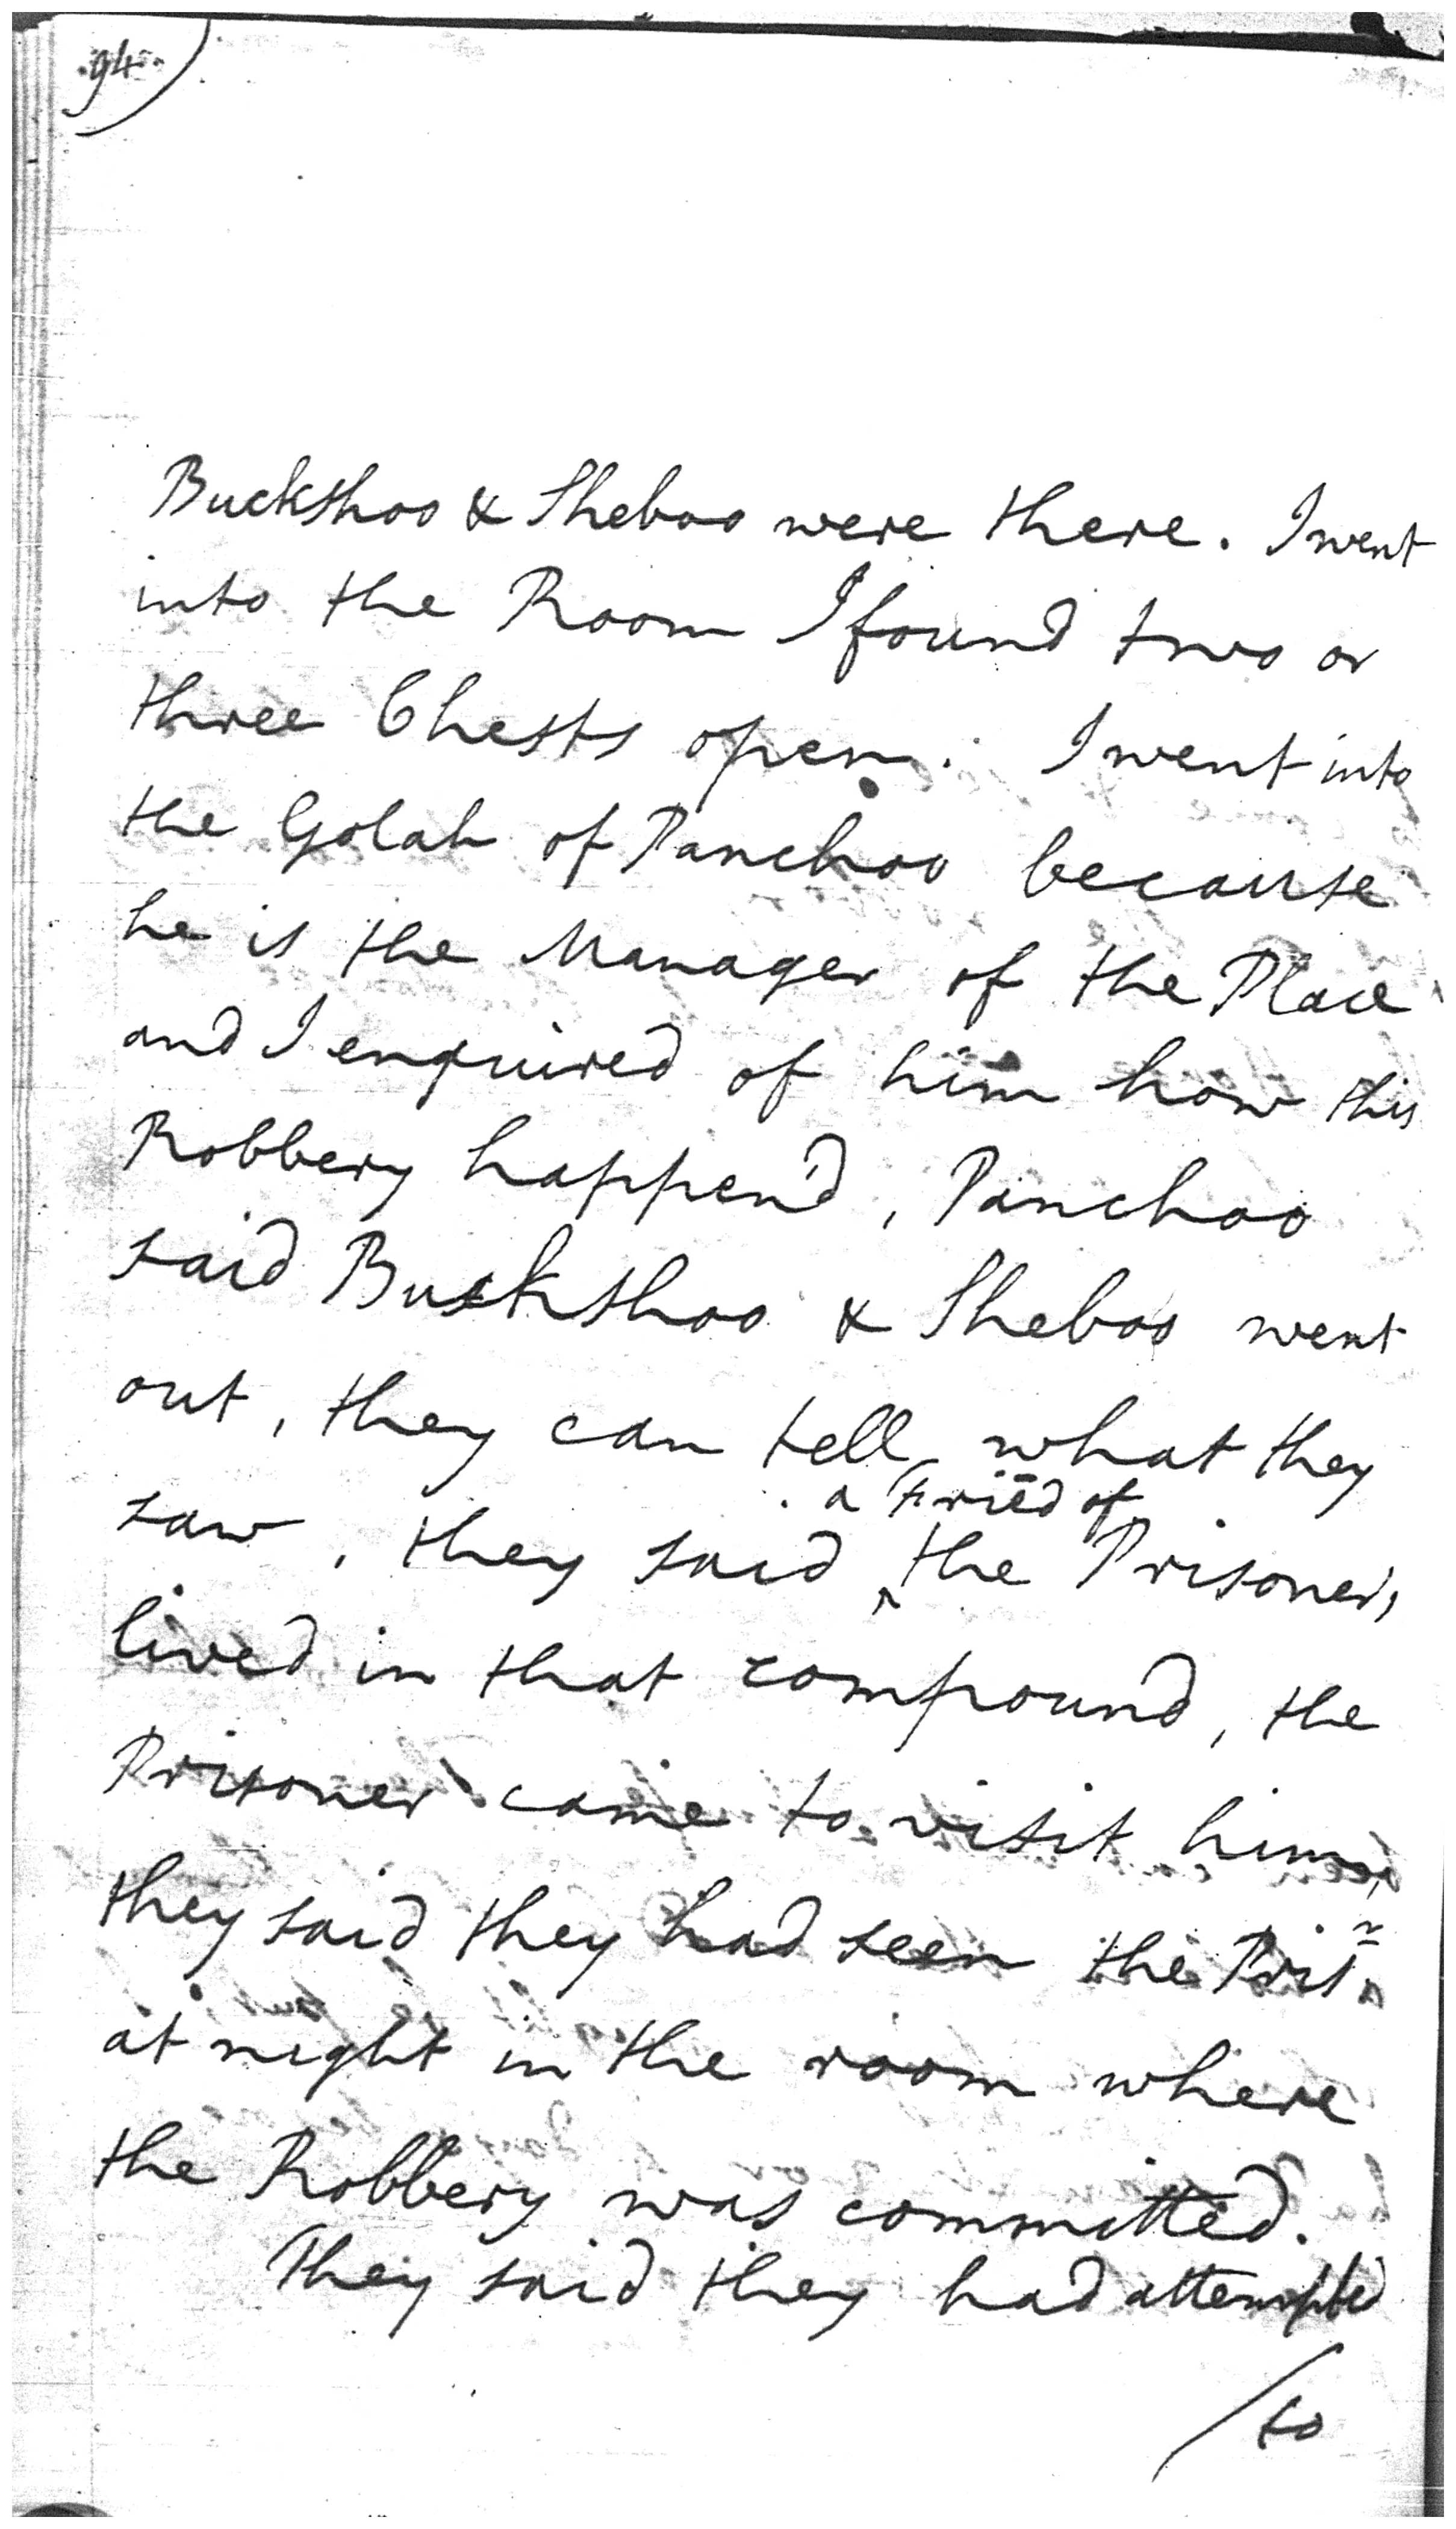 94)
Buckshoo & Sheboo were there. I went
into the Room I found two or
three Chests open. I went into
the Golah of Panchoo because
he is the Manager of the Place
and I enquired of him how this
Robbery happen'd, Panchoo
said Buckshoo & Sheboo went
out, they can tell what they
a Friēd of
saw, they said ^ the Prisoner,
lived in that compound, the
Prisoner came to visit him,
they said they had seen the Prisr
at night in the room where
the Robbery was committed.
They said they had attempted
/to